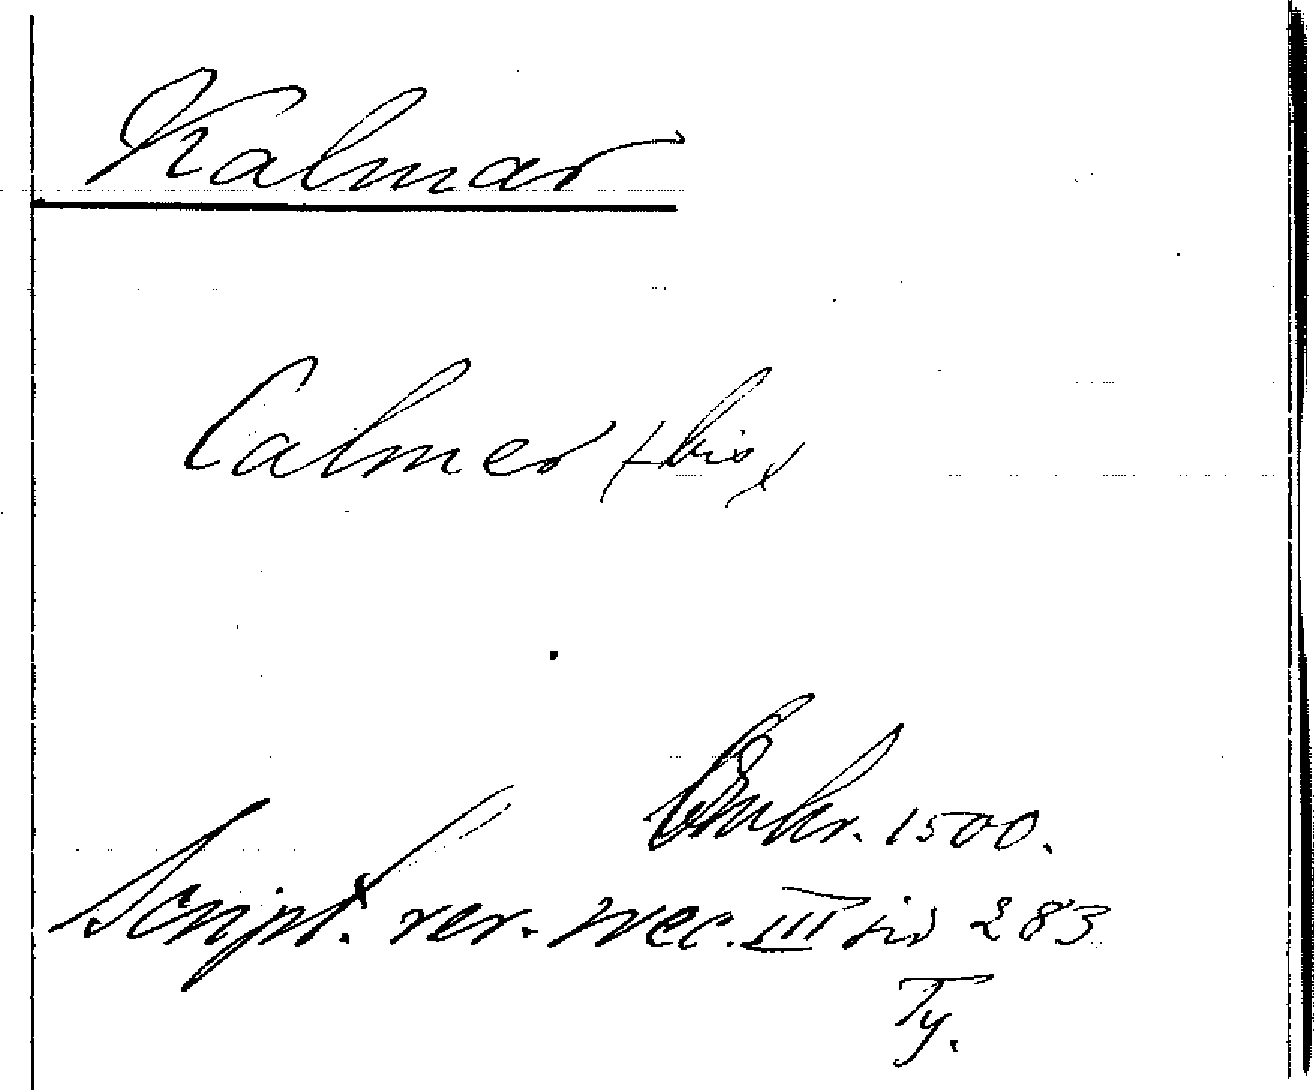 Kalmar
Calmer (bis)
Omkr. 1500.
Script. rer. svec. III sid 283
Ty.